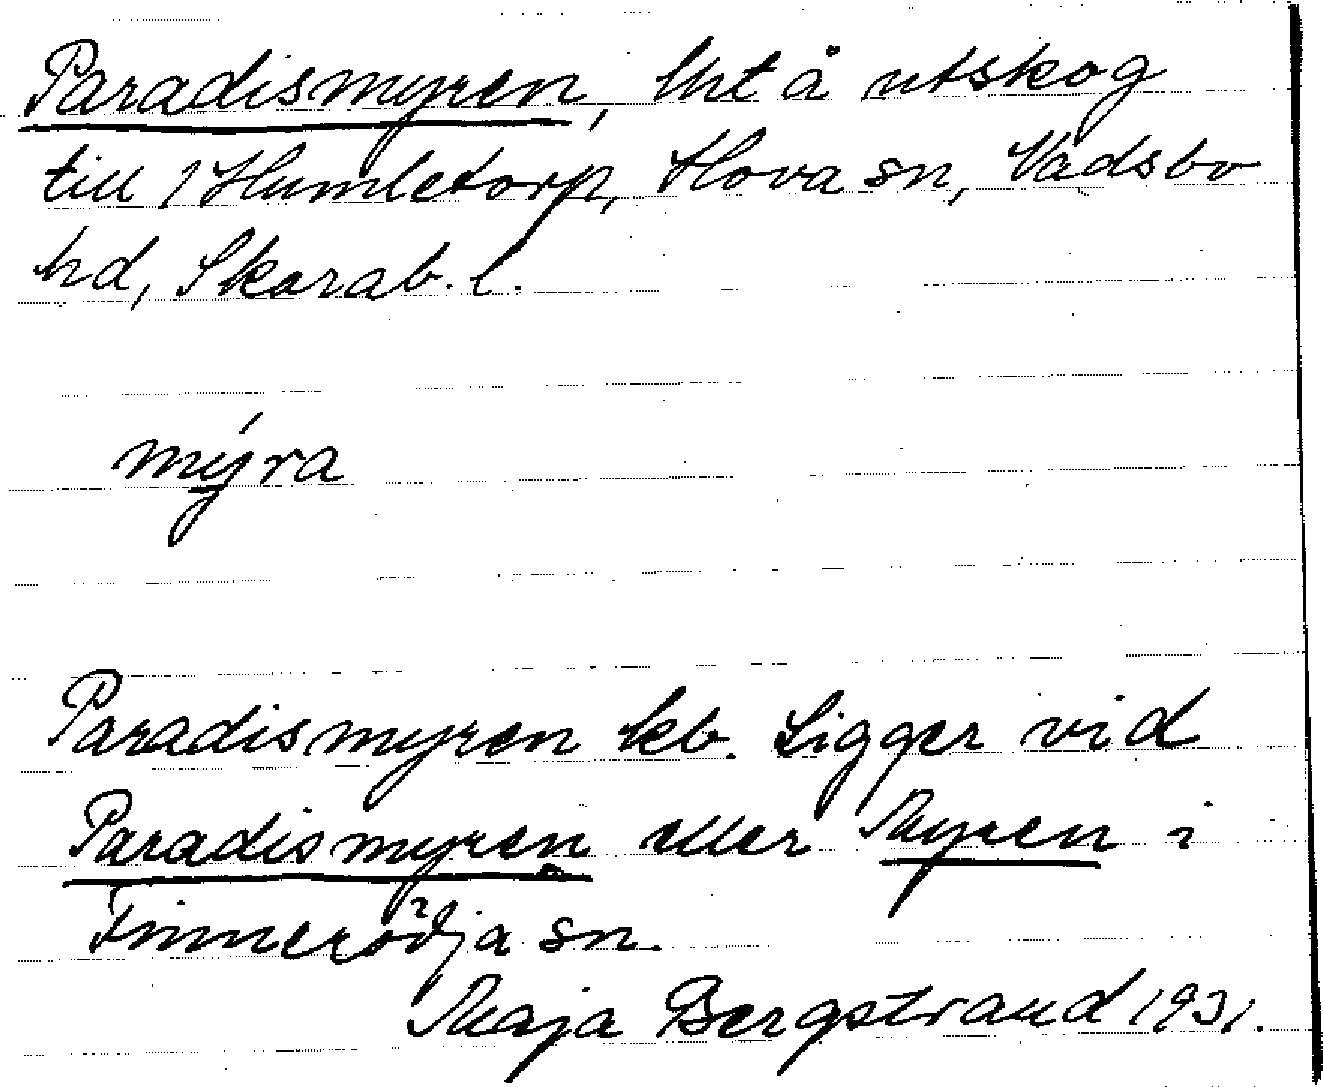 Paradismyren, lht å utskog
till 1 Humletorp, Hova sn, Vadsbo
hd, Skarab. l.
mýra
Paradismyren kb. Ligger vid
Paradismyren eller Myren i
Finnerödja sn.
Maja Bergstrand 1931.